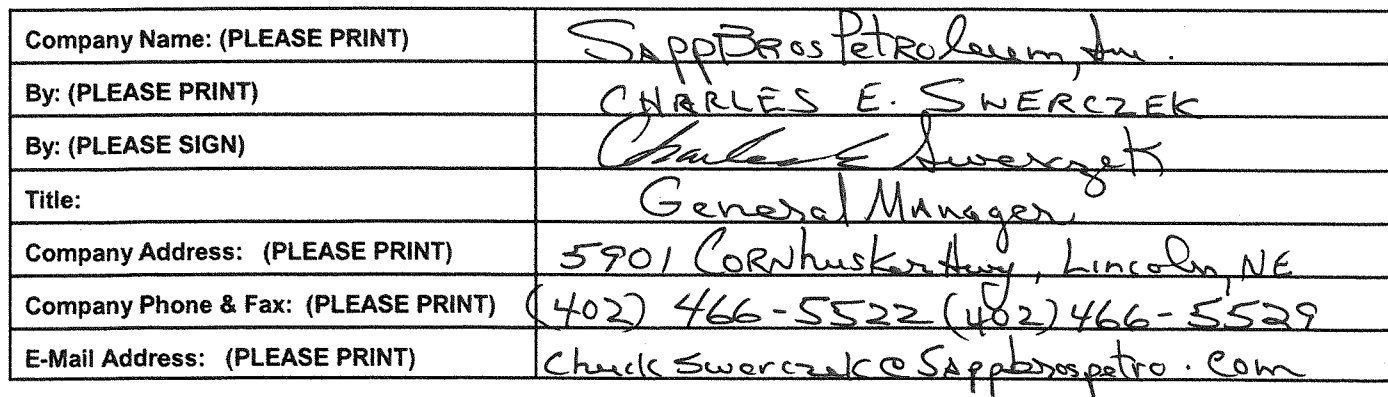 Company Name: (PLEASE PRINT) SAppBRos PetRoleum, Inc.
By: (PLEASE PRINT) CHARLES E. SWERCZEK
By: (PLEASE SIGN) Charles E Swerczek
Title: General Manager
Company Address: (PLEASE PRINT) 5901 CORNhusker Hwy, Lincoln, NE
Company Phone & Fax: (PLEASE PRINT) (402) 466-5522 (402) 466-5529
E-Mail Address: (PLEASE PRINT) ChuckSwerczek@Sappbrospetro.Com